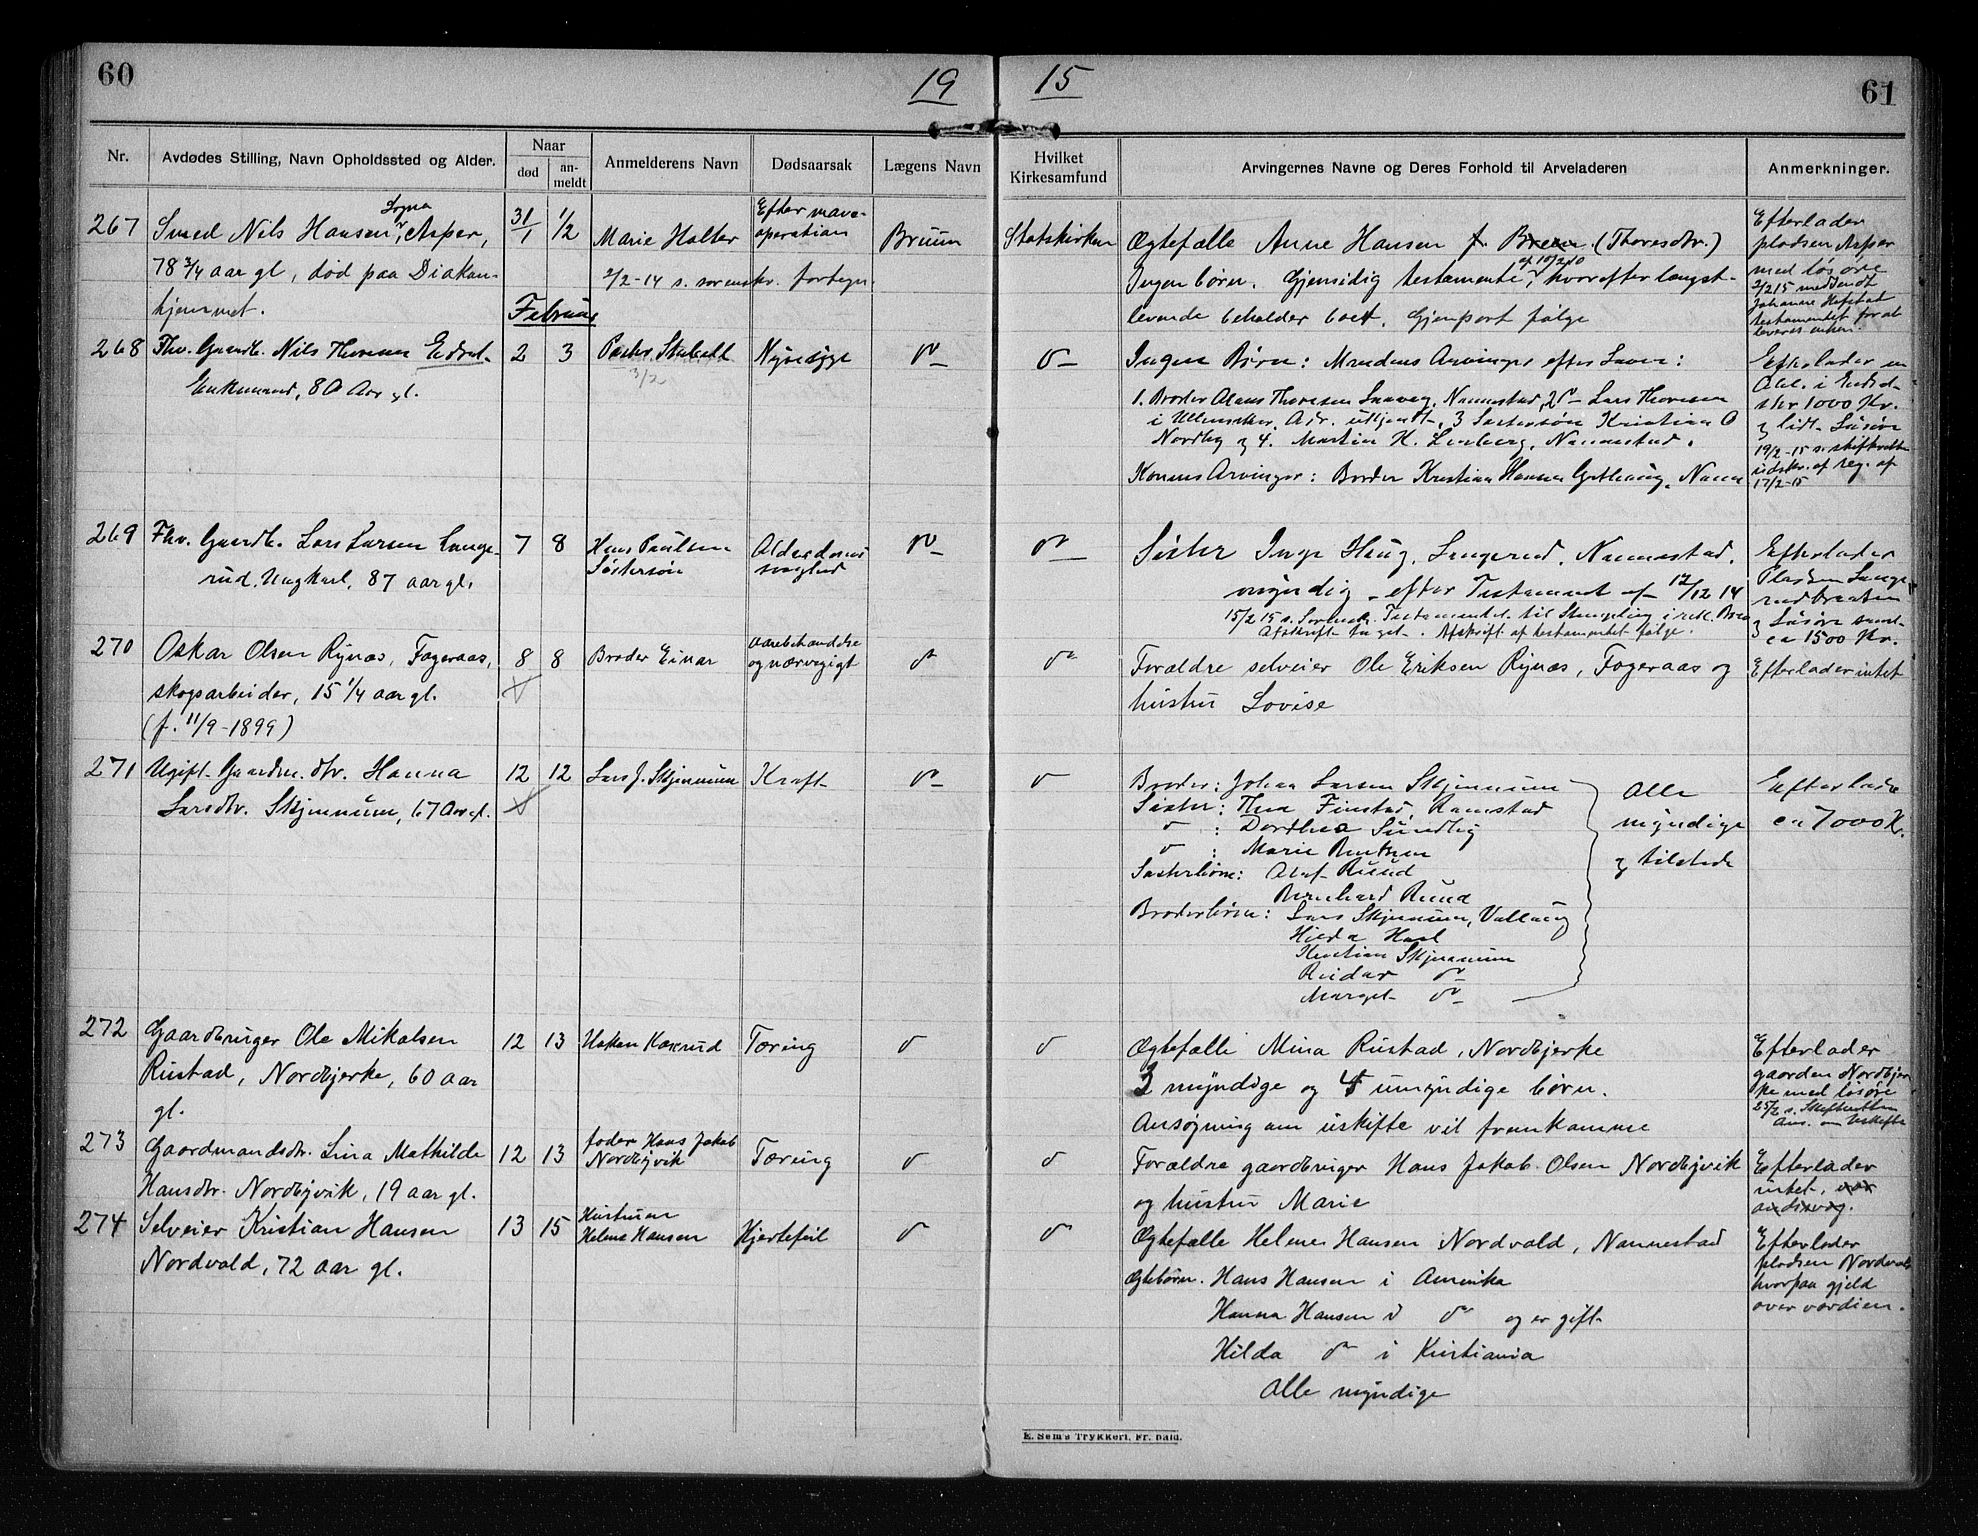 60
19 15
61
Nr.
Avdødes Stilling, Navn Opholdssted og Alder.
Naar
død
an-
meldt
Anmelderens Navn
Dødsaarsak
Lægens Navn
Hvilket
Kirkesamfund
Arvingernes Navne og Deres Forhold til Arveladeren
Anmerkninger.
267
Smed Nils Hansen Asper,
78 3/4 aar gl, død paa Diakon-
hjemmet.
31/1
1/2
Marie Holter
2/2-14 s. sorenskr. fortegn.
Efter mave-
operation
Bruun
Statskirken
Ægtefælle Anne Hansen f. Breen (Thoresdtr.)
Ingen børn. Gjensidig testamente af 10/2 10, hvorefter længst-
levende beholder boet. Gjenpart følge
Efterlader
pladsen Asper
med løsøre
2/2 15 medsendt
testamentet for at
leveres enken.
Februar
268
Fhv. Gaardb. Nils Thoresen
Enkemand, 80 Aar gl.
2
3
3/2
Nyresyge
Ingen Børn: Mandens Arvinger efter Loven:
1. Broder Thoresen Nannestad, 2 Lars Thoresen
3 Søstersøn Kristian O
Nordby og 4. Martin H. Nannestad.
Konens Arvinger: Broder Kristian Hansen
Efterlader en
1000 Kr.
og lidt Løsøre
19/2-15 s. skifteretten
udskr. af reg. af
17/2-15
269
Fhv. Gaardb. Lars Larsen Lange-
rud, Ungkarl, 87 aar gl.
7
8
Hans Paulsen
Søstersøn
Alderdoms
svaghed
Søster Inge Haug, Langerud, Nannestad,
myndig - efter Testament af 12/12 14
15/2 15 s. Sorensk. Testamentet til
Afskrift taget. Afskrift af testamentet følge.
Efterlader
Pladsen Lange-
rudbraaten
og Løsøre samt
ca 1500 Kr.
270
Oskar Olsen Rynæs, Fageraas,
skogsarbeider, 15 1/4 aar gl.
(f. 11/9-1899)
8
8
Broder Einar
og nærvegigt
Forældre selveier Ole Eriksen Rynæs, Fageraas og
hustru Lovise
Efterlader intet
271
Ugift Gaardm. dtr. Hanna
Larsdtr. Skjennum, 67 Aar gl.
12
12
Lars J. Skjennum
Kræft
Broder: Johan Larsen Skjennum
Søster: Thea Finstad, Ramstad
" : Dorthea Sundby
" : Marie Bentsen
Søsterbørn: Olaf Ruud
Bernhard Ruud
Broderbørn: Lars Skjennum, Vallaug
Hilda
Kristian Skjennum
Reidar "
Marget "
Alle
myndige
og tilstede
Efterlader
ca 7000 K.
272
Gaardbruger Ole Mikalsen
Rustad, Nordbjerke, 60 aar
gl.
12
13
Hakon Kaxrud
Tæring
Ægtefælle Mina Rustad, Nordbjerke
3 myndige og 4 umyndige børn.
Ansøgning om uskifte vil fremkomme
Efterlader
gaarden Nordbjer
ke med løsøre
25/2 s. Skifteretten
Ans. om Uskifte
273
Gaardmandsdtr. Lina Mathilde
Hansdtr. Nordbyvik, 19 aar gl.
12
13
fader Hans Jakob
Nordbyvik
Tæring
Forældre gaardbruger Hans Jakob Olsen Nordbyvik
og hustru Marie
Efterlader
intet.
274
Selveier Kristian Hansen
Nordvold, 72 aar gl.
13
15
Hustruen
Helene Hansen
Hjertefeil
Ægtefælle Helene Hansen Nordvold, Nannestad
Ægtebørn. Hans Hansen i Amerika
Hanna Hansen i " og er gift
Hilda " i Kristiania
Alle myndige
Efterlader
pladsen Nordvold
hvorpaa gjeld
over værdien.
E. Sem's Trykkeri, Fr.hald.